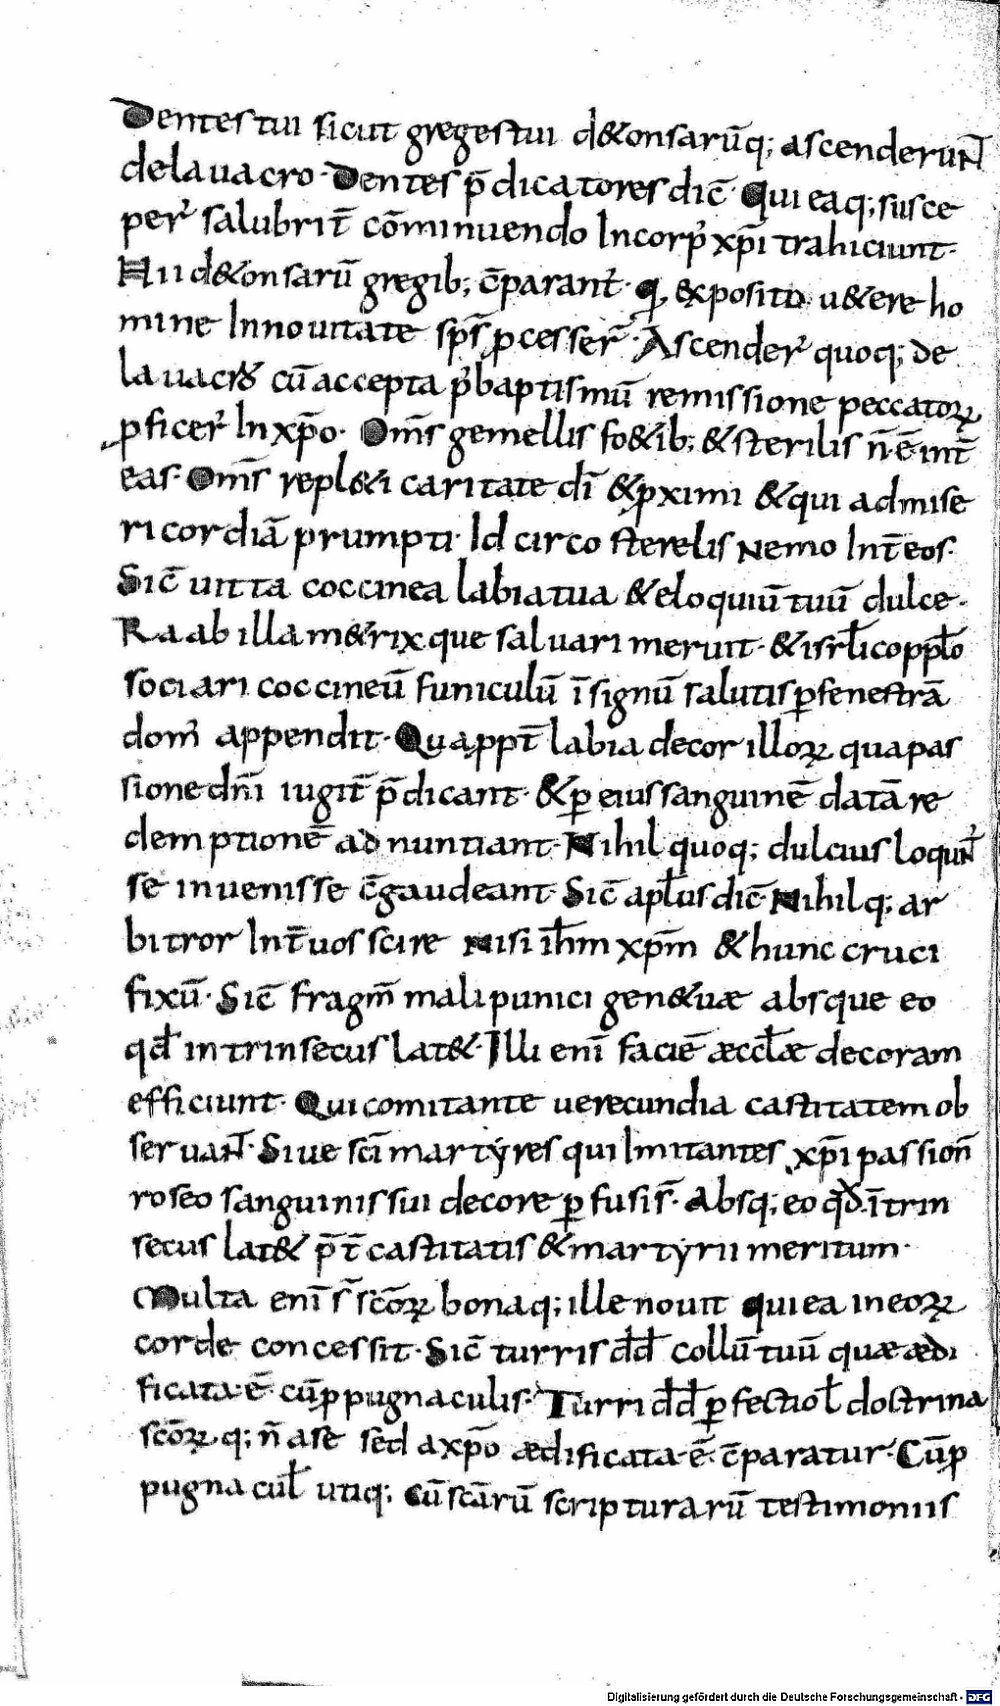 Dentes tui sicut greges tui d&onsarūq; ascenderunt
de lauacro. Dentes p̄dicatores dic̄. Qui eaq; susce
per̄ salubrit̄ cōminuendo Incorp' xp̄i trahiciunt.
Hii d&onsarū gregib; c̄parant'. q exposito u&ere ho
mine Innouitate sp̄s ꝓcesser̄. Ascender̄ quoq; de
lauacro cū accepta p baptismū remissione peccatoꝝ
ꝓficer̄ In xp̄o. Om̄s gemellis fo&ib; & sterilis n̄ ē int̄
eas. Om̄s repl&i caritate dī & ꝓximi & qui ad mise
ricordiā prumpti. Idcirco sterelis nemo Int̄ eos.
Sic̄ uitta coccinea labia tua & eloquiū tuū dulce.
Raab illa m&rix que saluari meruit. & isrl̄ico ppl̄o
sociari coccineū funiculū ī signū salutis ꝑ fenestrā
dom' appendit. Quappt̄ labia decor illoꝝ qua pas
sione dn̄i iugit̄ p̄dicant. & ꝑ eius sanguinē datā re
demptionē adnuntiant. Nihil quoq; dulcius loqunt'
se inuenisse c̄gaudeant. Sic̄ apl̄us dic̄ Nihil q; ar
bitror Int̄ uos scire nisi ih̄m xp̄m & hunc cruci
fixū. Sic̄ fragm̄ mali punici gen& uæ absque eo
qđ intrinsecus lat&. Illi enī faciē æccl̄æ decoram
efficiunt. Qui comitante uerecundia castitatem ob
seruant. Siue sc̄i martyres qui Imitantes xp̄i passion̄
roseo sanguinis sui decore ꝑfusi s̄. Absq; eo qđ ītrin
secus lat& p̄t̄ castitatis & martyrii meritum.
Multa enī s̄ sc̄oꝝ bona q; ille nouit qui ea in eoꝝ
corde concessit. Sic̄ turris dđ collū tuū quæ ædi
ficata ē cū ꝓpugnaculis. Turri dđ ꝑfectio l̄ doctrina
sc̄oꝝ q; n̄ a se sed a xp̄o ædificata ē. c̄paratur. Cū ꝓ
pugnacul̄ utiq; cū sc̄arū scripturarū testimoniis
Digitalisierung gefördert durch die Deutsche Forschungsgemeinschaft - DFG